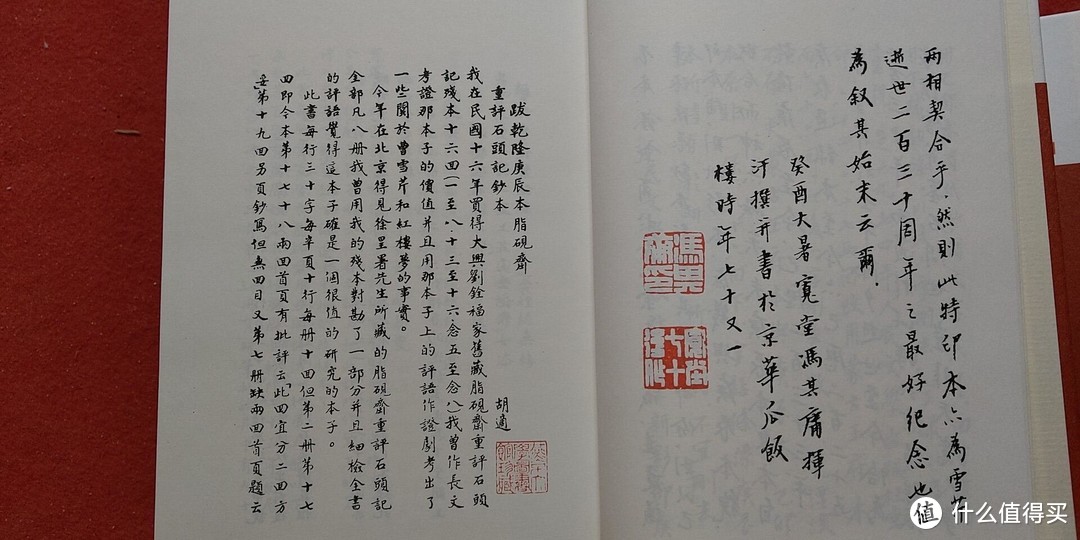 两相契合乎.然則此特印本亦為雪芹
逝世二百三十周年之最好紀念也
為叙其始末云爾.
癸酉大暑寬堂馮其庸揮
汗撰并書於京華瓜飯
樓時年七十又一
馮其庸印
跋乾隆庚辰本脂硯齋
重評石頭記鈔本
胡適
我在民國十六年買得大興劉銓福家舊藏脂硯齋重評石頭
記殘本十六回(一至八.十三至十六.念五至念八)我曾作長文
考證那本子的價值并且用那本子上的評語作證劇考出了
一些關於曹雪芹和紅樓夢的事實。
今年在北京得見徐星署先生所藏的脂硯齋重評石頭記
全部凡八册我曾用我的殘本對勘了一部分并且細檢全書
的評語覺得這本子確是一個很值的研究的本子。
此書每行三十字每半頁十行每册十回但第二册第十七
回即今本第十七十八兩回首頁有批評云「此回宜分二回方
妥」第十九回另頁鈔寫但無回目又第七册缺兩回首頁題云
值 什么值得买